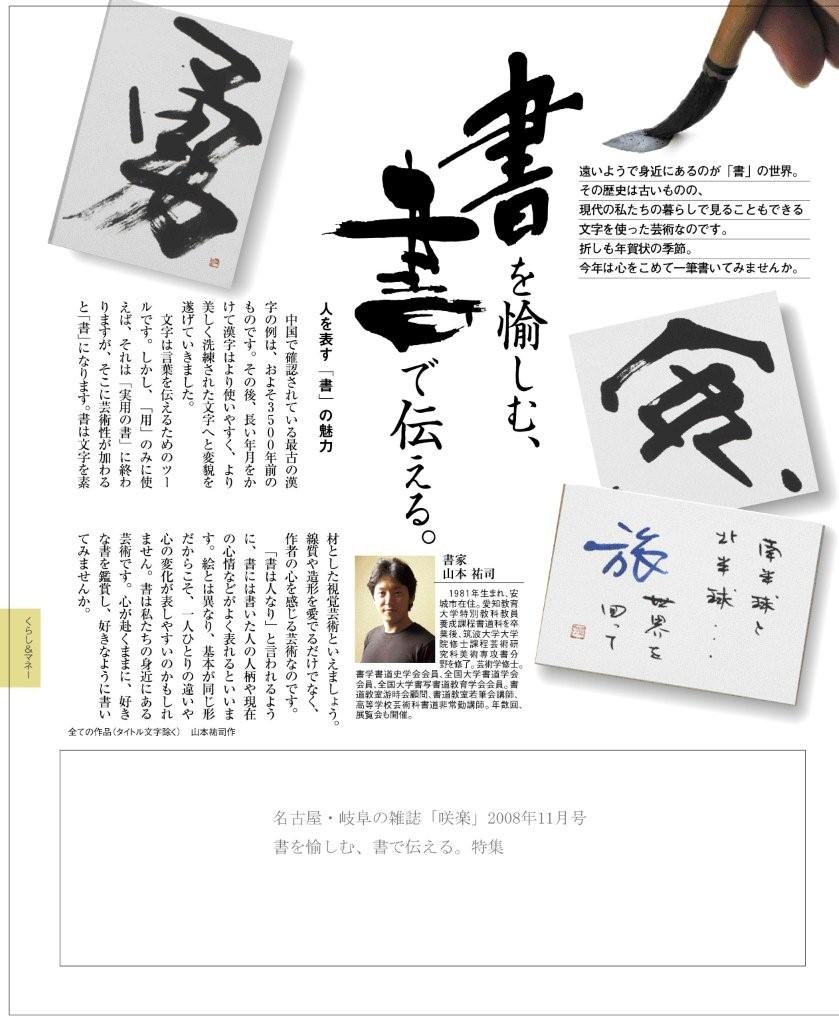 書を愉しむ、
書で伝える。
遠いようで身近にあるのが「書」の世界。
その歴史は古いものの、
現代の私たちの暮らしで見ることもできる
文字を使った芸術なのです。
折しも年賀状の季節。
今年は心をこめて一筆書いてみませんか。
人を表す「書」の魅力
中国で確認されている最古の漢
字の例は、およそ3500年前の
ものです。その後、長い年月をか
けて漢字はより使いやすく、より
美しく洗練された文字へと変貌を
遂げていきました。
文字は言葉を伝えるためのツー
ルです。しかし、「用」のみに使
えば、それは「実用の書」に終わ
りますが、そこに芸術性が加わる
と「書」になります。書は文字を素
材とした視覚芸術といえましょう。
線質や造形を愛でるだけでなく、
作者の心を感じる芸術なのです。
「書は人なり」と言われるよう
に、書には書いた人の人柄や現在
の心情などがよく表れるといいま
す。絵とは異なり、基本が同じ形
だからこそ、一人ひとりの違いや
心の変化が表しやすいのかもしれ
ません。書は私たちの身近にある
芸術です。心が赴くままに、好き
な書を鑑賞し、好きなように書い
てみませんか。
書家
山本 祐司
1981年生まれ、安
城市在住。愛知教育
大学特別教科教員
養成課程書道科を卒
業後、筑波大学大学
院修士課程芸術研
究科美術専攻書分
野を修了。芸術学修士。
書学書道史学会会員、全国大学書道学会
会員、全国大学書写書道教育学会会員。書
道教室游時会顧問、書道教室若葦会講師、
高等学校芸術科書道非常勤講師。年数回、
展覧会も開催。
南半球と
北半球..
旅
世界を
回って
全ての作品(タイトル文字除く) 山本祐司作
くらし&マネー
名古屋・岐阜の雑誌「咲楽」2008年11月号
書を愉しむ、書で伝える。特集